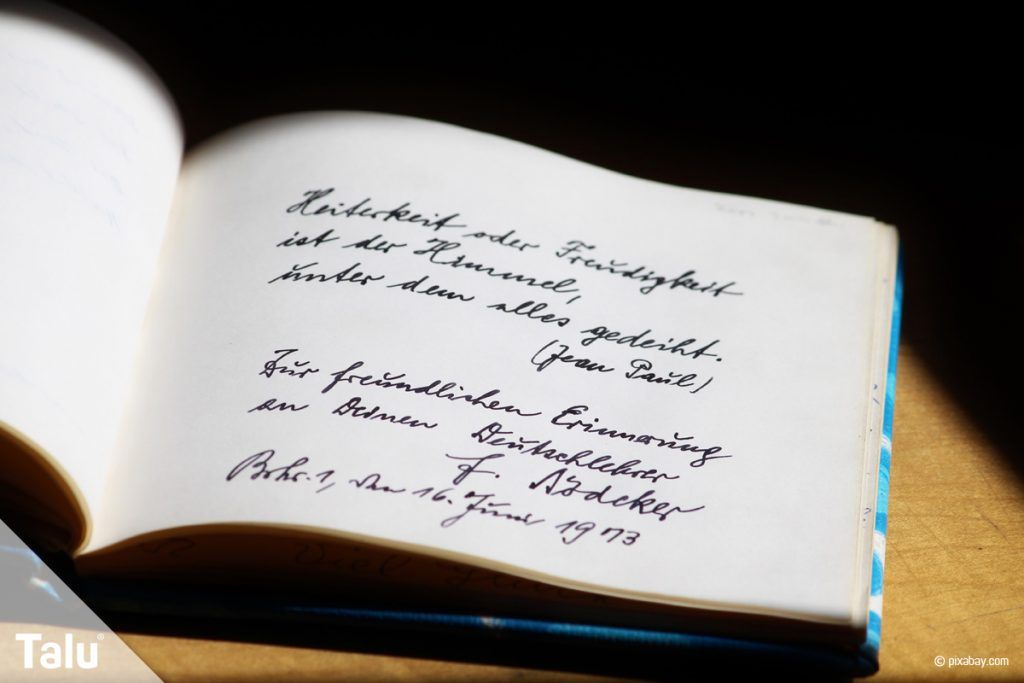 Heiterkeit oder Freudigkeit
ist der Himmel,
unter dem alles gedeiht.
(Jean Paul)
Zur freundlichen Erinnerung
an Deinen Deutschlehrer
F.
den 16. Juni 1973
Viel
Talu®
© pixabay.com